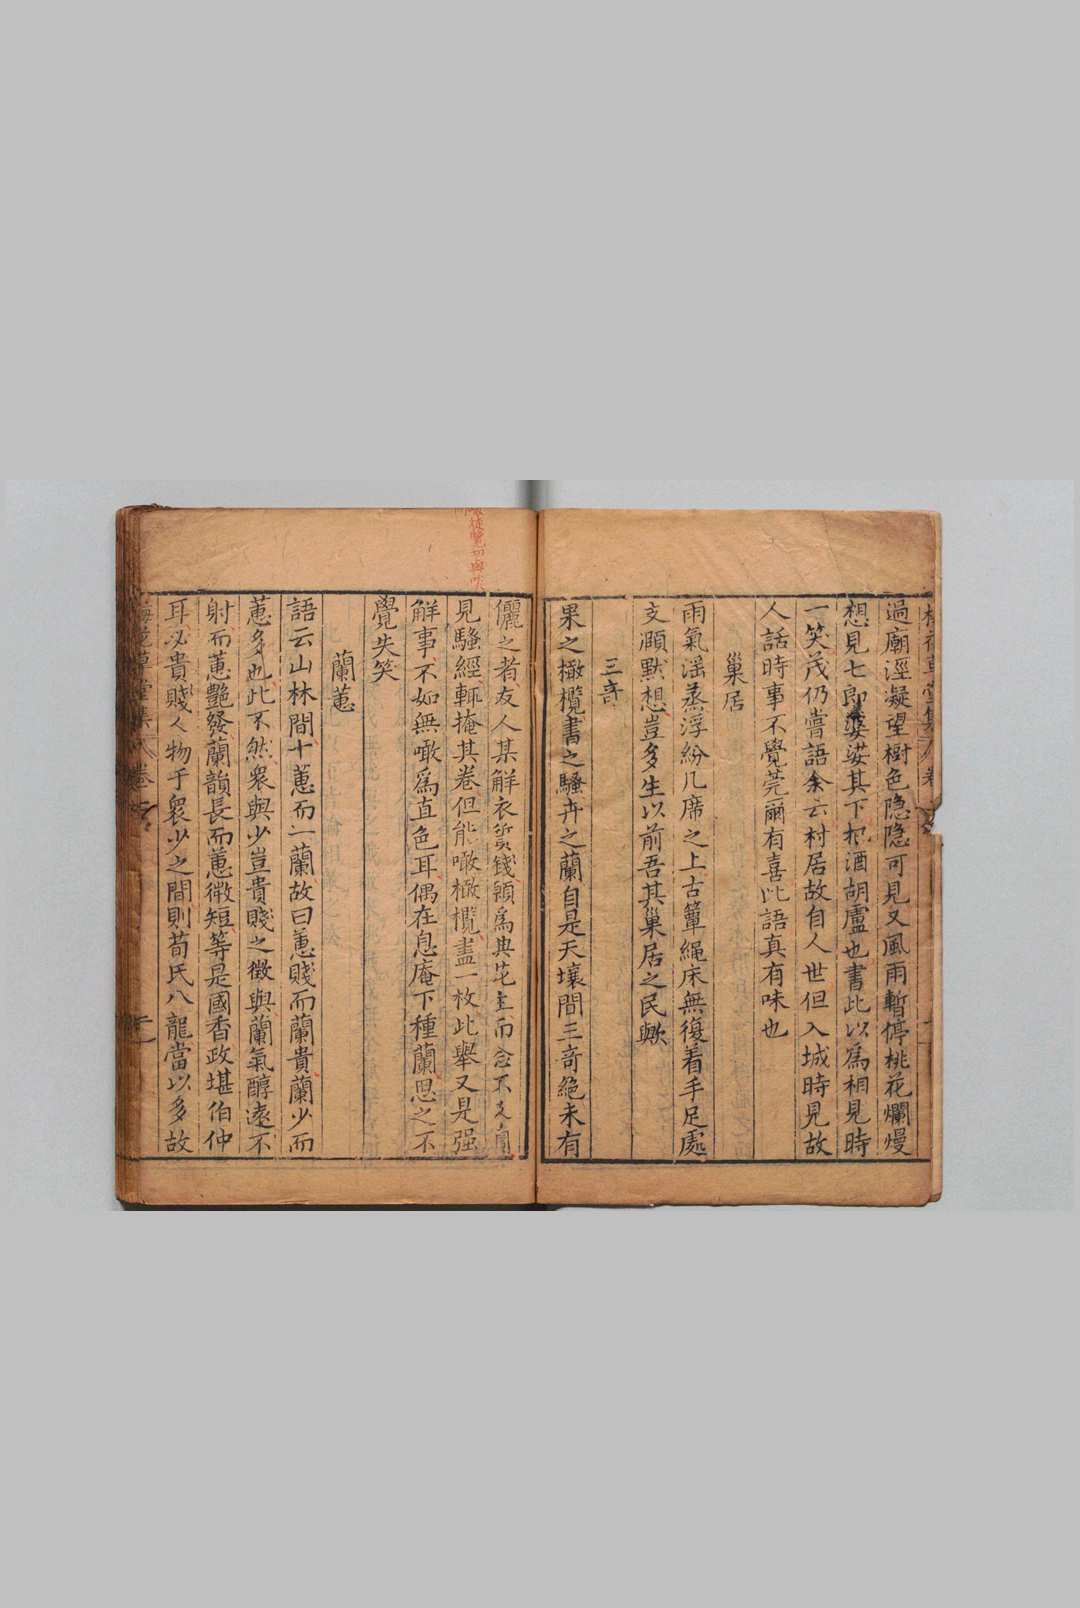 過廟涇凝望樹色隐隐可見又風雨暫停桃花爛熳
想見七郎婆娑其下把酒胡盧也書此以為相見時
一笑茂仍嘗語余云村居故自人世但入城時見故
人話時事不覺莞爾有喜此語真有味也
巢居
雨氣滛蒸浮紛几席之上古簟繩床無復着手足處
支頤默想豈多生以前吾其巢居之民歟
三竒
果之橄欖書之騷卉之蘭自是天壤間三竒絶未有
儷之者友人某解衣質錢領為典花主而念不
見騷經輒掩其卷但能噉橄欖盡一枚此舉又是强
觧事不如無噉為直色耳偶在息庵下種蘭思之不
覺失笑
蘭蕙
語云山林間十蕙而一蘭故曰蕙賤而蘭貴蘭少而
蕙多也此不然衆與少豈貴賤之徵與蘭氣醇遠不
射而蕙豔發蘭韻長而蕙微短等是國香政堪伯仲
耳必貴賤人物于衆少之間則荀氏八龍當以多故
草堂集 卷